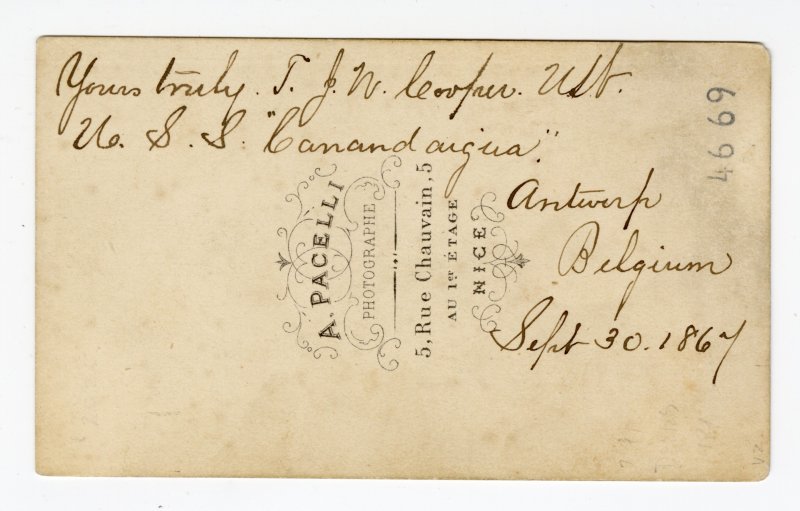 Yours truly. T. J. W. Cooper. USN.
U. S. S. "Canandaigua".
Antwerp
Belgium
Sept 30. 1867
A. PACELLI
PHOTOGRAPHE
5, Rue Chauvain, 5
AU 1er ÉTAGE
NICE
4669